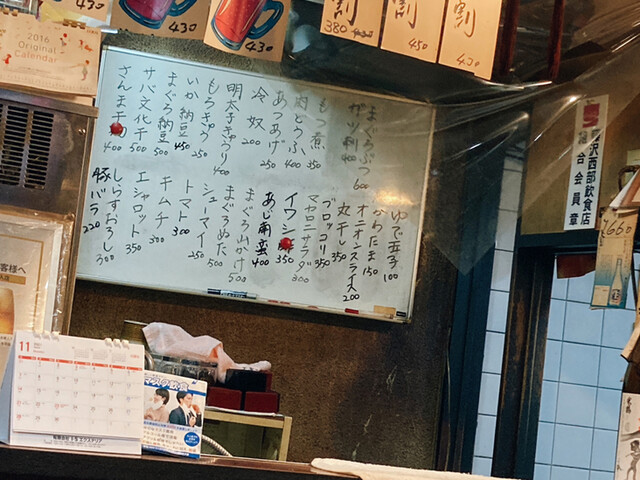 430
430
430
割
380
割
450
割
430
2016
Original
Calendar
まぐろぶつ 600
ガツ刺 400
もつ煮 350
肉とうふ 400
あつあげ 250
冷奴 200
明太子きゅうり 400
もろきゅう 250
いか納豆 450
まぐろ納豆 500
サバ文化干 500
さんま干物 400
ゆで玉子 100
からたま 150
オニオンスライス 200
丸干し 350
ブロッコリ 350
マカロニサラダ 300
イワシ 350
あじ南蛮 400
まぐろ山かけ 500
まぐろぬた 500
シューマイ 250
トマト 300
キムチ 300
エシャロット 350
しらすおろし 300
豚バラ 220
沢西部飲食店
組合会員章
¥660
客様へ
11
マスク飲食